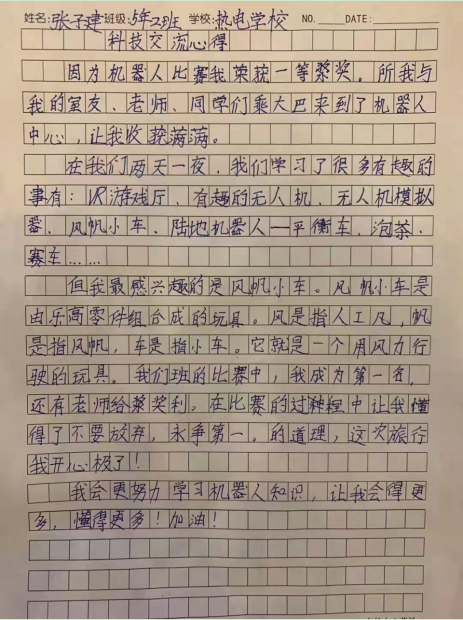 姓名:张子建 班级:5年2班 学校:热电学校 NO. DATE:
科技交流心得
因为机器人比赛我荣获一等桨奖。所我与
我的室友、老师、同学们乘大巴来到了机器人
中心,让我收获满满。
在我们两天一夜,我们学习了很多有趣的
事有:VR游戏厅、有趣的无人机、无人机模拟
器、风帆小车、陆地机器人—平衡车、泡茶、
赛车……
但我最感兴趣的是风帆小车。风帆小车是
由乐高零件组合成的玩具。风是指人工风,帆
是指风帆,车是指小车。它就是一个用风力行
驶的玩具。我们班的比赛中,我成为第一名,
还有老师给桨奖利。在比赛的过程中让我懂
得了不要放弃,永争第一。的道理,这次旅行
我开心极了!
我会更努力学习机器人知识,让我会得更
多,懂得更多!加油!